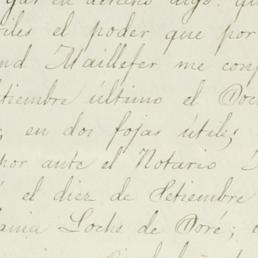 en derecho digo: que
tiles el poder que por
nd Maillefer me conf
etiembre último el Doc
, en dos fojas útiles;
por ante el Notario
el diez de Setiembre
Loche de Doré;